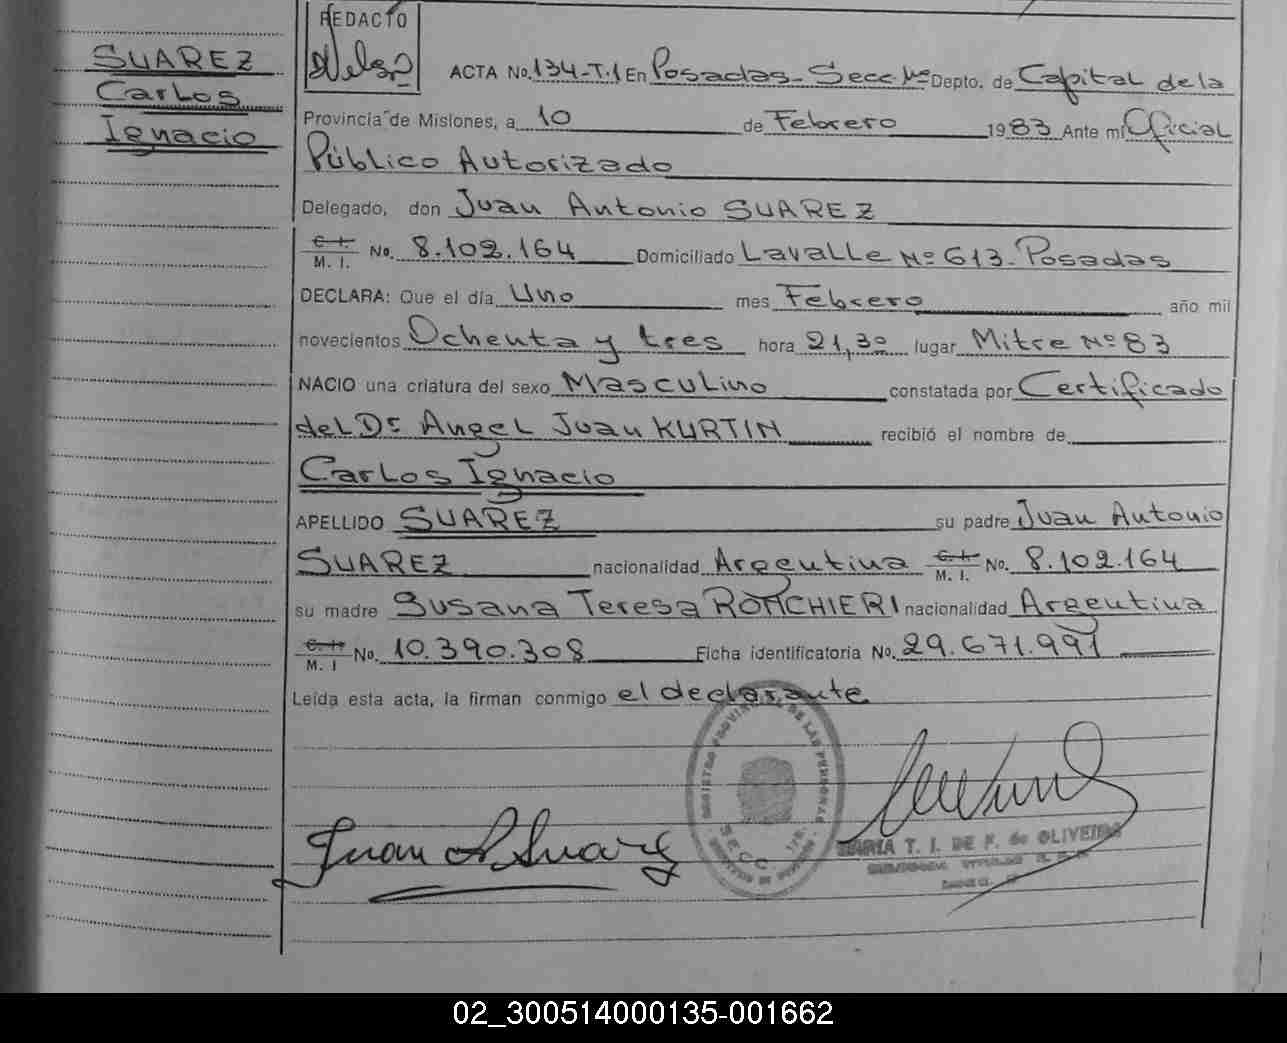 SUAREZ
Carlos
Ignacio
REDACTO
ACTA No. 134-T.1 En Posadas-Secc Depto. de Capital de la
Provincia de Misiones, a 10 de Febrero 1983 Ante mi Oficial
Público Autorizado
Delegado, don Juan Antonio SUAREZ
C. I. M. I. No. 8.102.164 Domiciliado Lavalle Nº 613-Posadas
DECLARA: Que el día Uno mes Febrero año mil
novecientos Ochenta y tres hora 21,30 lugar Mitre Nº 83
NACIO una criatura del sexo Masculino constatada por Certificado
del Dr Angel Juan KURTIN recibió el nombre de
Carlos Ignacio
APELLIDO SUAREZ su padre Juan Antonio
SUAREZ nacionalidad Argentina C. I. M. I. No. 8.102.164
su madre Susana Teresa RONCHIERI nacionalidad Argentina
C. I. M. I No. 10.390.308 Ficha identificatoria No. 29.671.991
Leída esta acta, la firman conmigo el declarante
REGISTRO PROVINCIAL DE LAS PERSONAS
SECC.
Juan A Suarez
MARIA T. I. DE F. de OLIVEIRA
02_300514000135-001662